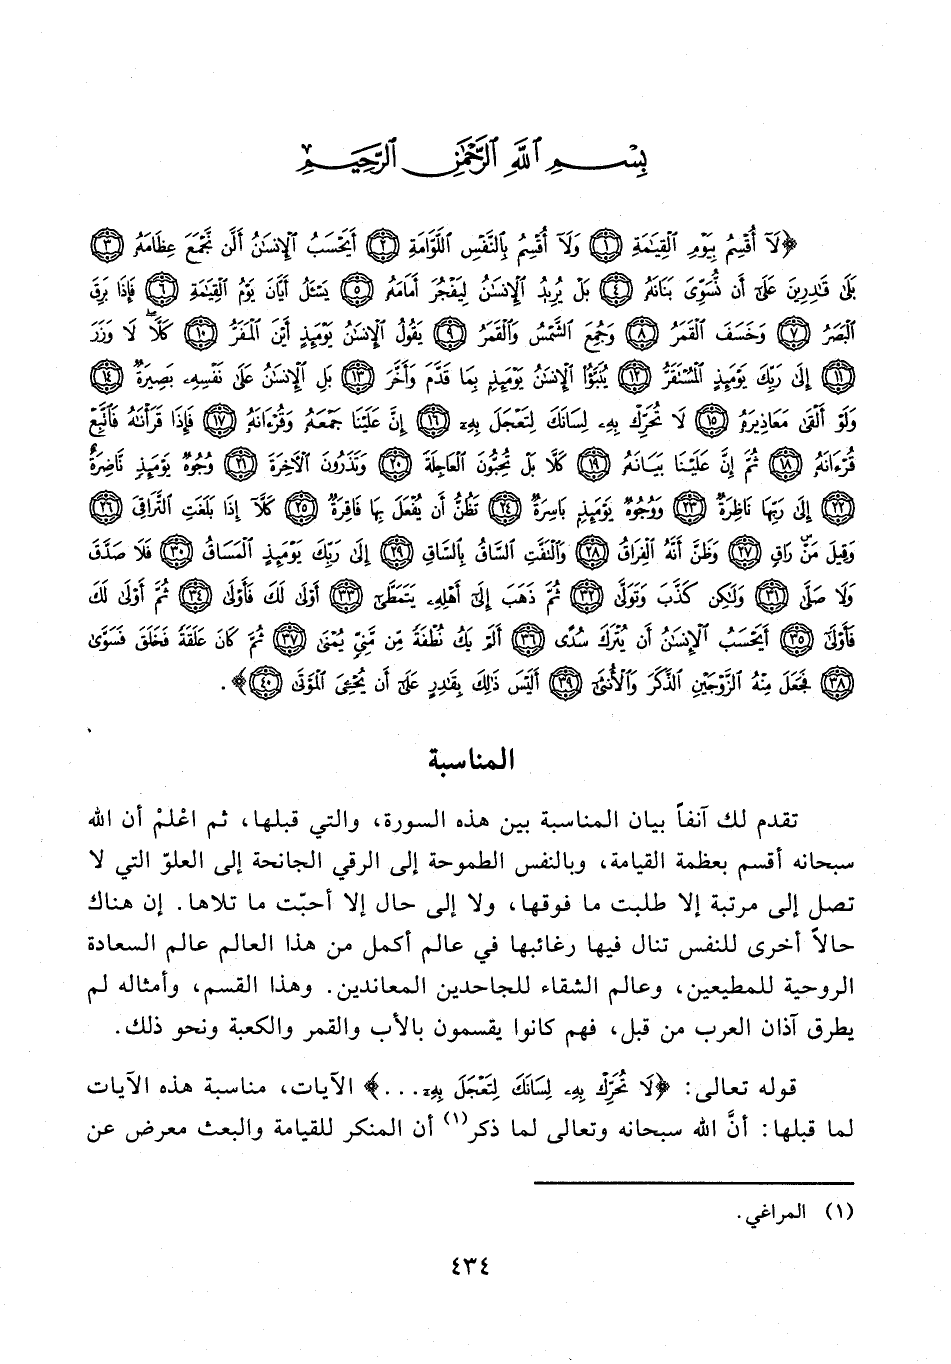 بِسْمِ ٱللَّهِ ٱلرَّحْمَٰنِ ٱلرَّحِيمِ
﴿لَآ أُقْسِمُ بِيَوْمِ ٱلْقِيَٰمَةِ ﴿١﴾ وَلَآ أُقْسِمُ بِٱلنَّفْسِ ٱللَّوَّامَةِ ﴿٢﴾ أَيَحْسَبُ ٱلْإِنسَٰنُ أَلَّن نَّجْمَعَ عِظَامَهُۥ ﴿٣﴾
بَلَىٰ قَٰدِرِينَ عَلَىٰٓ أَن نُّسَوِّىَ بَنَانَهُۥ ﴿٤﴾ بَلْ يُرِيدُ ٱلْإِنسَٰنُ لِيَفْجُرَ أَمَامَهُۥ ﴿٥﴾ يَسْـَٔلُ أَيَّانَ يَوْمُ ٱلْقِيَٰمَةِ ﴿٦﴾ فَإِذَا بَرِقَ
ٱلْبَصَرُ ﴿٧﴾ وَخَسَفَ ٱلْقَمَرُ ﴿٨﴾ وَجُمِعَ ٱلشَّمْسُ وَٱلْقَمَرُ ﴿٩﴾ يَقُولُ ٱلْإِنسَٰنُ يَوْمَئِذٍ أَيْنَ ٱلْمَفَرُّ ﴿١٠﴾ كَلَّا لَا وَزَرَ
﴿١١﴾ إِلَىٰ رَبِّكَ يَوْمَئِذٍ ٱلْمُسْتَقَرُّ ﴿١٢﴾ يُنَبَّؤُا۟ ٱلْإِنسَٰنُ يَوْمَئِذٍۭ بِمَا قَدَّمَ وَأَخَّرَ ﴿١٣﴾ بَلِ ٱلْإِنسَٰنُ عَلَىٰ نَفْسِهِۦ بَصِيرَةٌ ﴿١٤﴾
وَلَوْ أَلْقَىٰ مَعَاذِيرَهُۥ ﴿١٥﴾ لَا تُحَرِّكْ بِهِۦ لِسَانَكَ لِتَعْجَلَ بِهِۦٓ ﴿١٦﴾ إِنَّ عَلَيْنَا جَمْعَهُۥ وَقُرْءَانَهُۥ ﴿١٧﴾ فَإِذَا قَرَأْنَٰهُ فَٱتَّبِعْ
قُرْءَانَهُۥ ﴿١٨﴾ ثُمَّ إِنَّ عَلَيْنَا بَيَانَهُۥ ﴿١٩﴾ كَلَّا بَلْ تُحِبُّونَ ٱلْعَاجِلَةَ ﴿٢٠﴾ وَتَذَرُونَ ٱلْءَاخِرَةَ ﴿٢١﴾ وُجُوهٌ يَوْمَئِذٍ نَّاضِرَةٌ
﴿٢٢﴾ إِلَىٰ رَبِّهَا نَاظِرَةٌ ﴿٢٣﴾ وَوُجُوهٌ يَوْمَئِذٍۭ بَاسِرَةٌ ﴿٢٤﴾ تَظُنُّ أَن يُفْعَلَ بِهَا فَاقِرَةٌ ﴿٢٥﴾ كَلَّآ إِذَا بَلَغَتِ ٱلتَّرَاقِىَ ﴿٢٦﴾
وَقِيلَ مَنْ رَاقٍ ﴿٢٧﴾ وَظَنَّ أَنَّهُ ٱلْفِرَاقُ ﴿٢٨﴾ وَٱلْتَفَّتِ ٱلسَّاقُ بِٱلسَّاقِ ﴿٢٩﴾ إِلَىٰ رَبِّكَ يَوْمَئِذٍ ٱلْمَسَاقُ ﴿٣٠﴾ فَلَا صَدَّقَ
وَلَا صَلَّىٰ ﴿٣١﴾ وَلَٰكِن كَذَّبَ وَتَوَلَّىٰ ﴿٣٢﴾ ثُمَّ ذَهَبَ إِلَىٰٓ أَهْلِهِۦ يَتَمَطَّىٰٓ ﴿٣٣﴾ أَوْلَىٰ لَكَ فَأَوْلَىٰ ﴿٣٤﴾ ثُمَّ أَوْلَىٰ لَكَ
فَأَوْلَىٰٓ ﴿٣٥﴾ أَيَحْسَبُ ٱلْإِنسَٰنُ أَن يُتْرَكَ سُدًى ﴿٣٦﴾ أَلَمْ يَكُ نُطْفَةً مِّن مَّنِىٍّ يُمْنَىٰ ﴿٣٧﴾ ثُمَّ كَانَ عَلَقَةً فَخَلَقَ فَسَوَّىٰ
﴿٣٨﴾ فَجَعَلَ مِنْهُ ٱلزَّوْجَيْنِ ٱلذَّكَرَ وَٱلْأُنثَىٰٓ ﴿٣٩﴾ أَلَيْسَ ذَٰلِكَ بِقَٰدِرٍ عَلَىٰٓ أَن يُحْـِۧىَ ٱلْمَوْتَىٰ ﴿٤٠﴾﴾.
المناسبة
تقدم لك آنفاً بيان المناسبة بين هذه السورة، والتي قبلها، ثم اعْلمْ أن الله
سبحانه أقسم بعظمة القيامة، وبالنفس الطموحة إلى الرقي الجانحة إلى العلوّ التي لا
تصل إلى مرتبة إلا طلبت ما فوقها، ولا إلى حال إلا أحبّت ما تلاها. إن هناك
حالاً أخرى للنفس تنال فيها رغائبها في عالم أكمل من هذا العالم عالم السعادة
الروحية للمطيعين، وعالم الشقاء للجاحدين المعاندين. وهذا القسم، وأمثاله لم
يطرق آذان العرب من قبل، فهم كانوا يقسمون بالأب والقمر والكعبة ونحو ذلك.
قوله تعالى: ﴿لَا تُحَرِّكْ بِهِۦ لِسَانَكَ لِتَعْجَلَ بِهِۦ...﴾ الآيات، مناسبة هذه الآيات
لما قبلها: أنَّ الله سبحانه وتعالى لما ذكر(١) أن المنكر للقيامة والبعث معرض عن
(١) المراغي.
٤٣٤